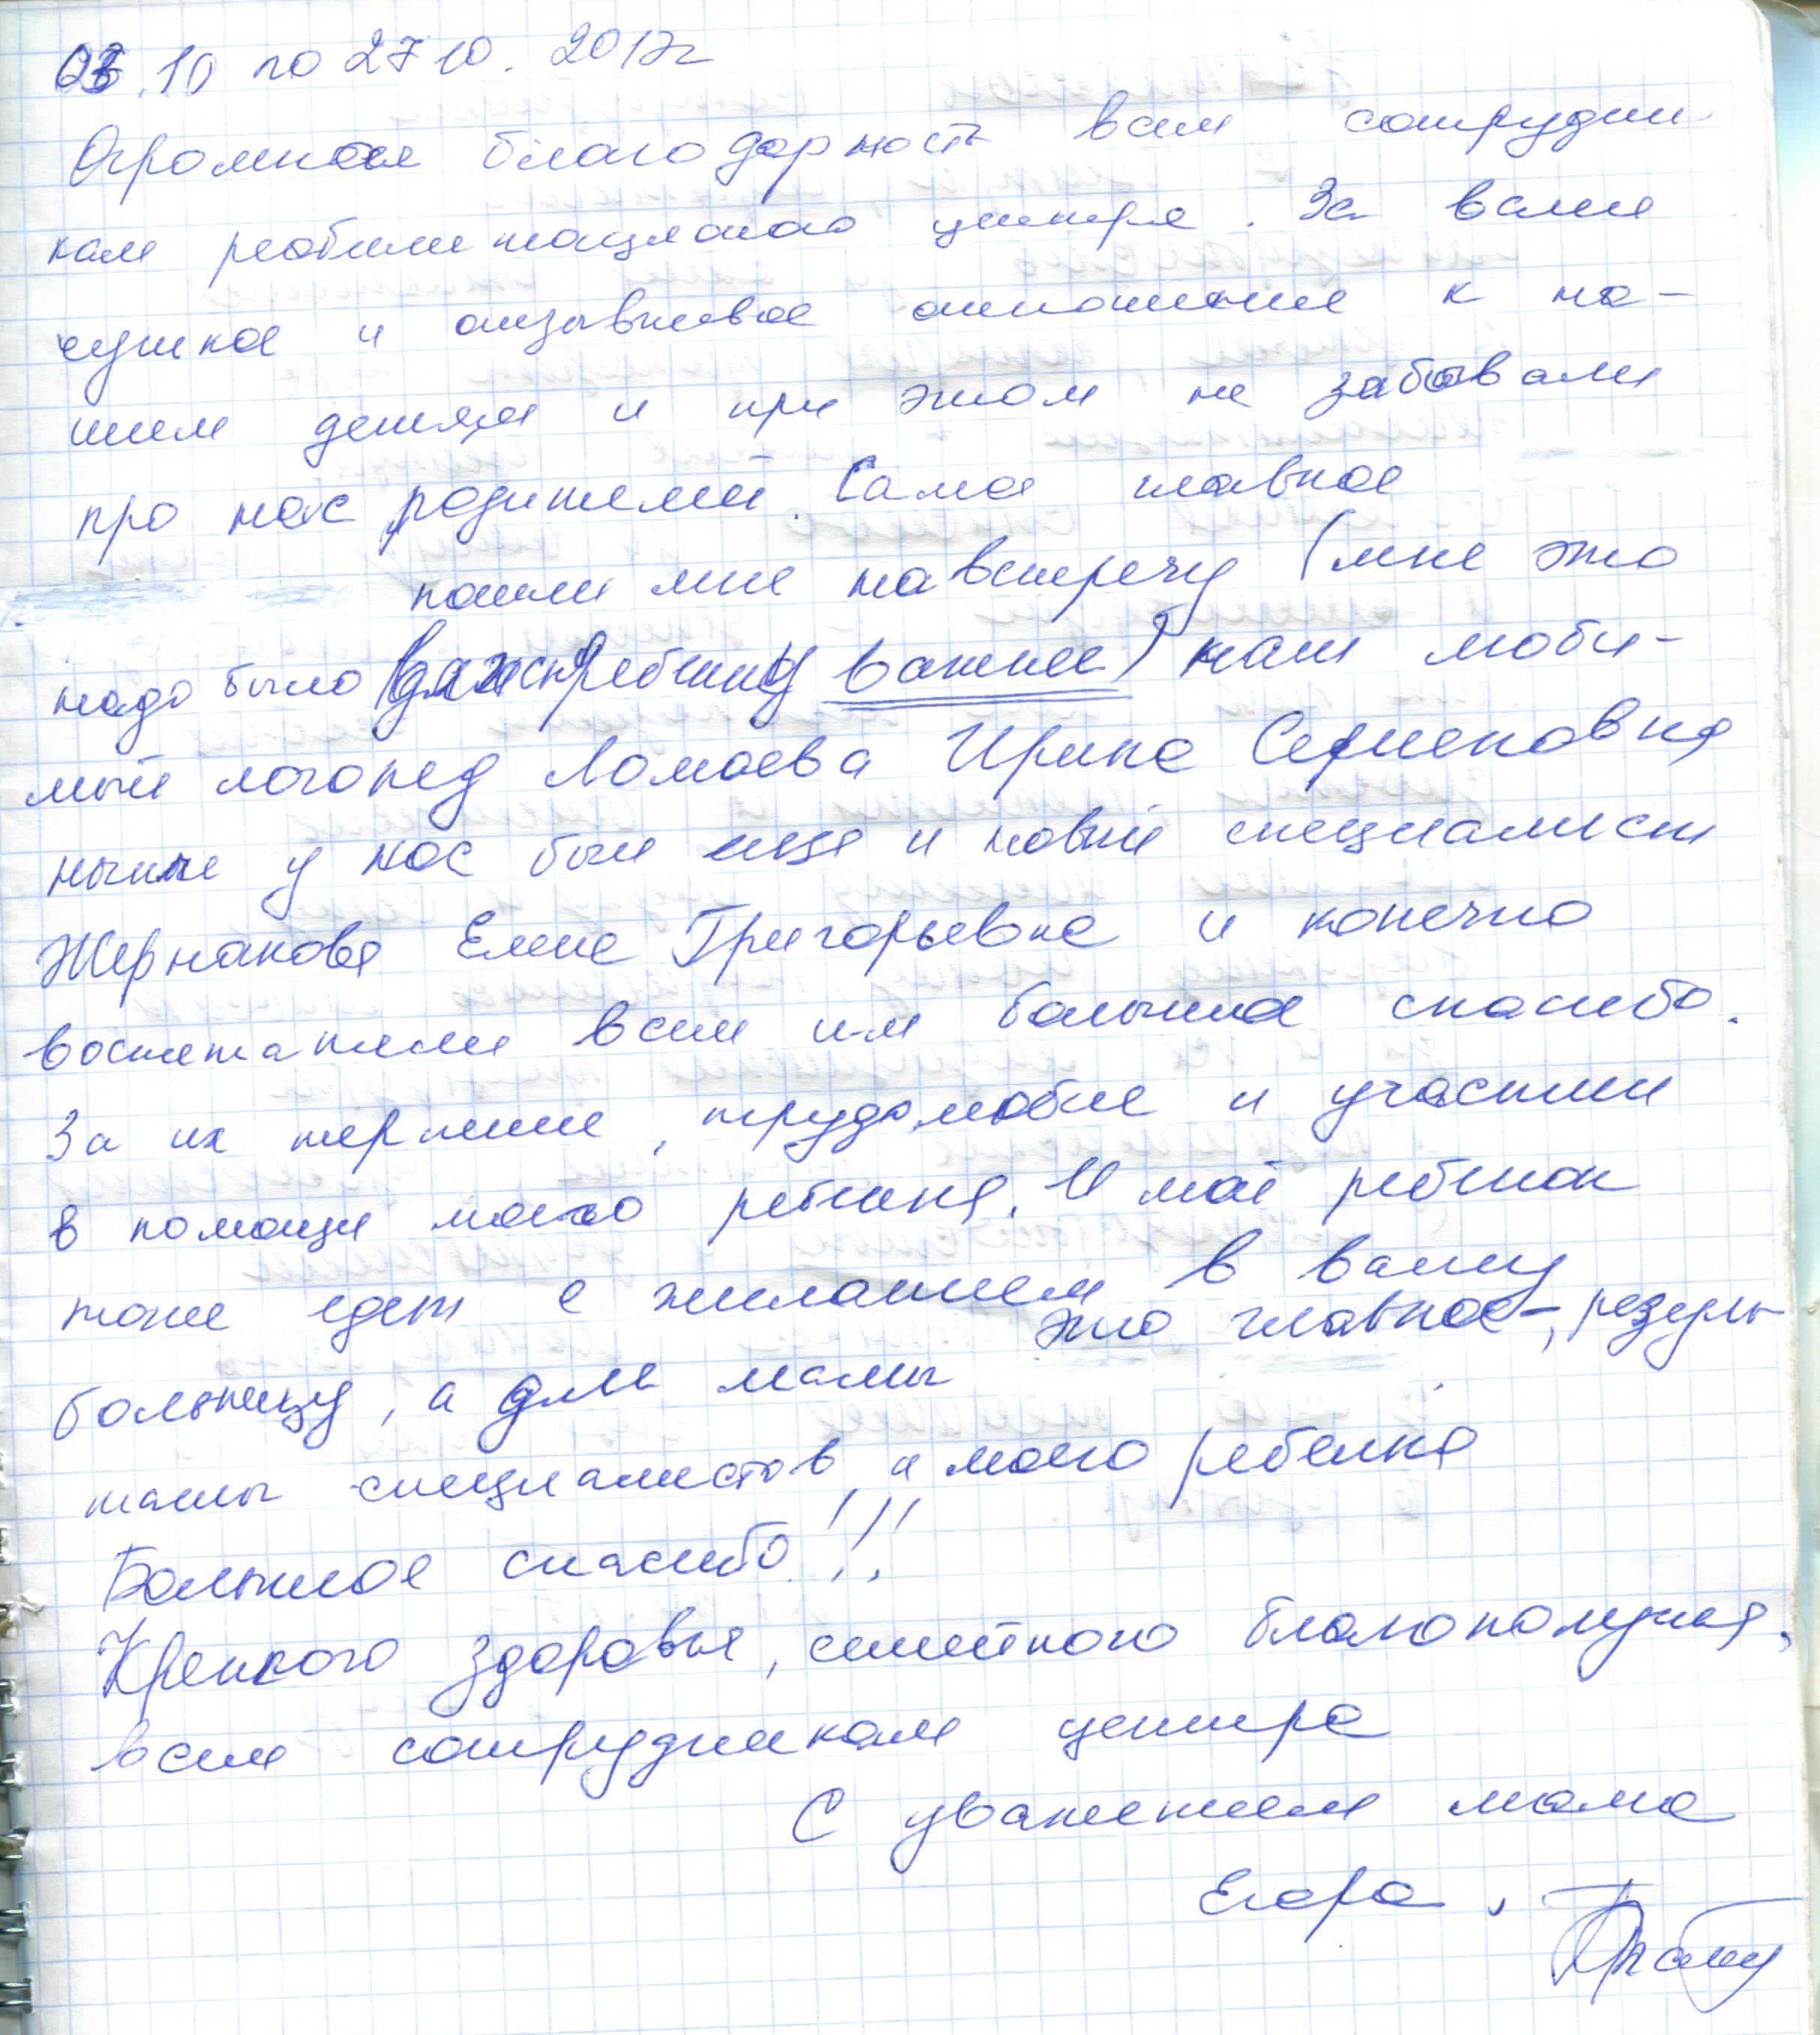 03.10 по 27 10. 2017г
Огромная благодарность всем сотрудни
кам реабилитацлоного центра. За ваше
чушкое и отзывчевое отношение к на-
шем детям и при этом не забывали
про нас родителей. Самое главное
пошли мне на встречу (мне это
надо было для ребенку важнее) наш люби-
мый логопед Ломаева Ирина Семеновна
нынче у нас был еще и новый специалист
Жернакова Елена Григорьевна и конечно
воспитатели всем им большое спасибо.
За их терпение, трудолюбие и участии
в помощи моего ребенка. И мой ребенок
тоже едет с желанием в вашу
больницу, а для мамы это главное-, резуль
таты специалистов и моего ребенка
Большое спасибо!!!
Крепкого здоровья, семейного благополучия,
всем сотрудникам центра
С уважением мама
Егора,